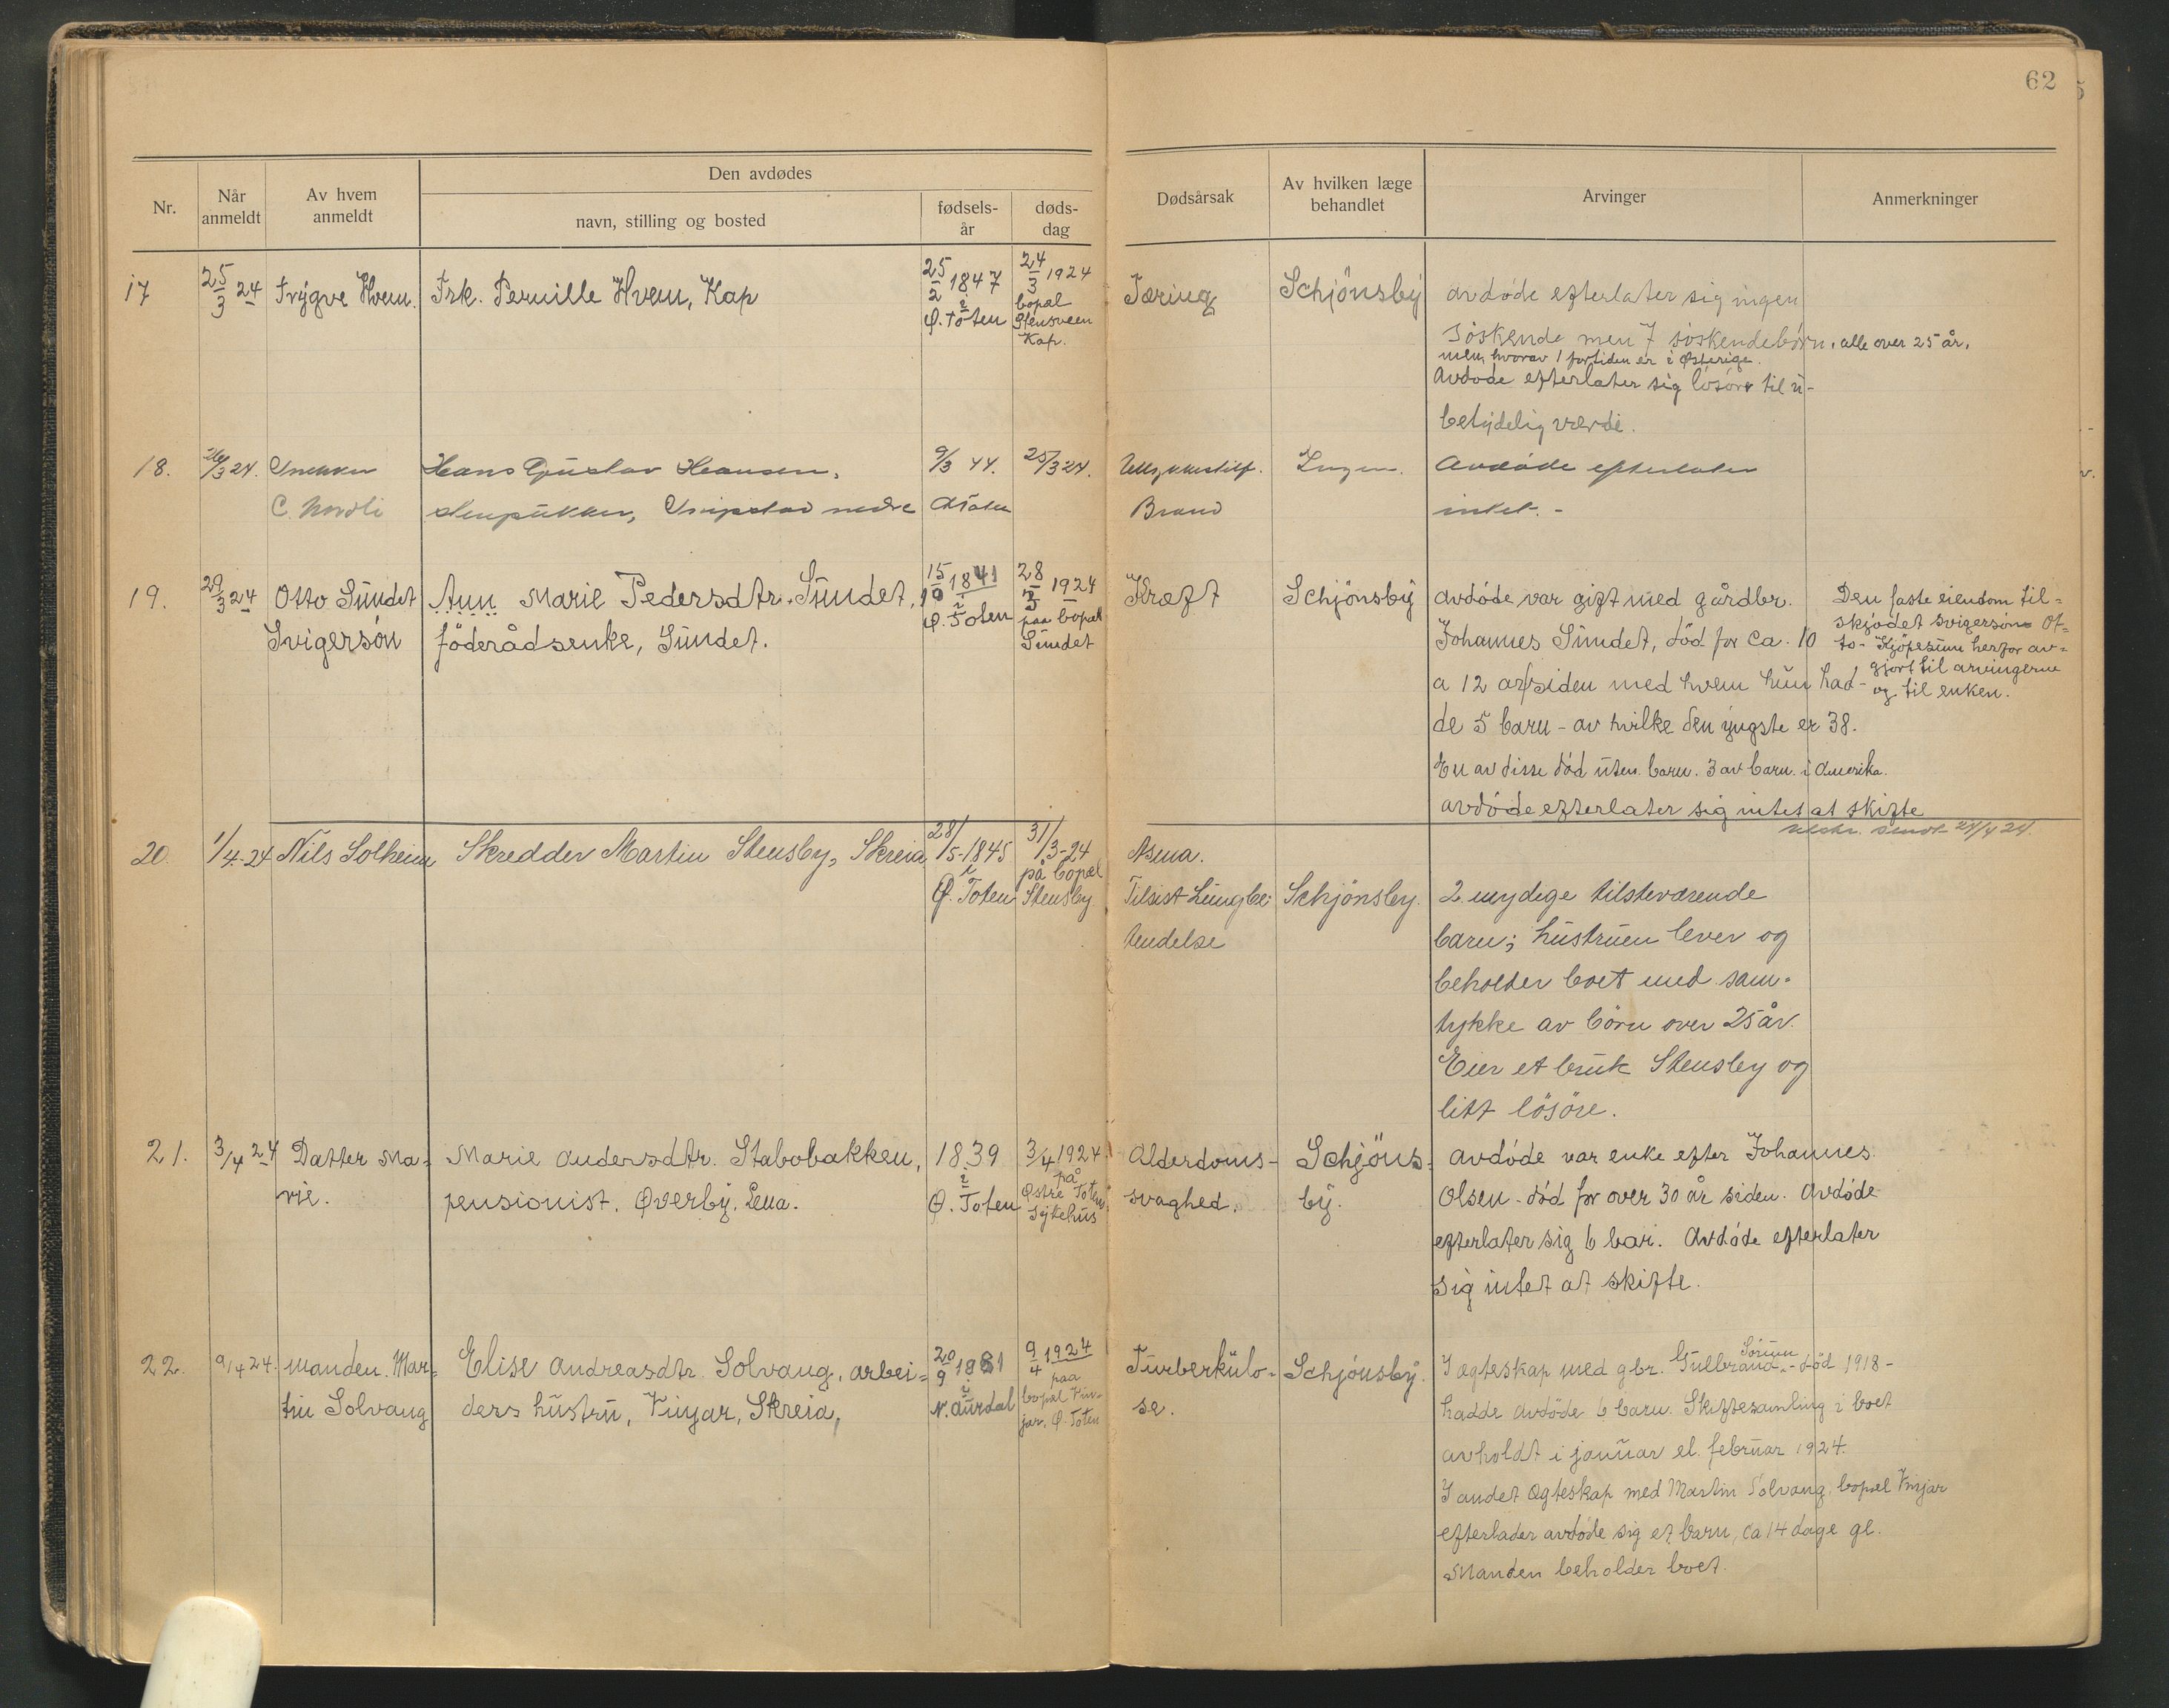 62
Nr.
Når anmeldt
Av hvem anmeldt
Den avdødes
navn, stilling og bosted
fødsels-år
døds-dag
Dødsårsak
Av hvilken læge behandlet
Arvinger
Anmerkninger
17
25/3 24
Trygve Hvem.
Frk. Pernille Hvem, Kap
25/2 1847
i
Ø. Toten
24/3 1924
bopæl
Stensveen
Kap.
Tæring
Schjönsby
avdöde efterlater sig ingen
söskende men 7 söskendebörn, alle over 25 år,
men hvorav 1 fortiden er i Østerige.
Avdöde efterlater sig lösöre til u-
betydelig værdi.
18.
26/3 24.
Snekker
C. Nordli
Hans Gustav Hansen,
stenpukker, nedre
9/3 44.
Ø Toten
25/3 24.
Ulykkestilf.
Brand
Ingen.
Avdöde efterlater
intet. -
19.
29/3 24
Otto Sundet
Svigersön
Ann Marie Pedersdtr. Sundet,
föderådsenke, Sundet.
15/10 1841
i
Ø. Toten
28/3 1924
paa bopæl
Sundet
Kræft
Schjönsby
avdöde var gift med gårdbr.
Johannes Sundet, död for ca. 10
a 12 år siden med hvem hun had-
de 5 barn - av hvilke den yngste er 38.
En av disse död uten barn. 3 av barn. i Amerika.
avdöde efterlater sig intet at skifte
Den faste eiendom til-
skjödet svigersön Ot-
to - Kjöpesum herfor av-
gjort til arvingerne
og til enken.
Utskr. sendt 24/4 24.
20.
1/4. 24
Nils Solheim
Skredder Martin Stensby, Skreia
28/5-1845
i
Ø. Toten
31/3-24
på bopæl
Stensby
Asma.
Tilsist Lungbe-
tendelse
Schjönsby.
2 mydige tilsteværende
barn; hustruen lever og
beholder boet med sam-
tykke av börn over 25 år.
Eier et bruk Stensby og
litt lösöre.
21.
3/4 24
Datter Ma-
rie.
Marie Andersdtr. Stabobakken,
pensionist. Øverby. Lena.
1839
i
Ø. Toten
3/4 1924
på
Østre Toten
Sykehus
Alderdoms-
svaghed.
Schjöns-
by.
avdöde var enke efter Johannes
Olsen - död for over 30 år siden. Avdöde
efterlater sig 6 barn. Avdöde efterlater
sig intet at skifte.
22.
9/4 24.
manden. Mar-
tin Solvang
Elise Andreasdtr. Solvang, arbei-
ders hustru, Vinjar, Skreia,
20/9 1881
i
N. Aurdal
9/4 1924
paa
bopæl Vin-
jar. Ø. Toten
Turberkulo-
se.
Schjönsby.
I ægteskap med gbr. Gulbrand Sörum - död 1918 -
hadde avdöde 6 barn. Skiftesamling i boet
avholdt i januar el. februar 1924.
I andet ægteskap med Martin Solvang, bopæl Vinjar
efterlader avdöde sig et barn, ca 14 dage gl.
Manden beholder boet.